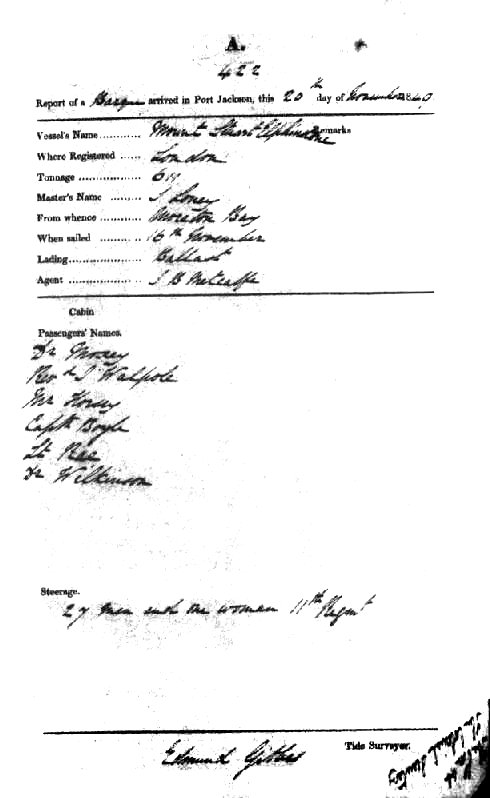 A.
422
Report of a Barque arrived in Port Jackson, this 20th day of November 18
Vessel's Name ........... Mount Stuart Elphinstone Remarks
Where Registered ...... London
Tonnage .................. 611
Master's Name ......... J Loney
From whence ............ Moreton Bay
When sailed .......... 16th November
Lading..................... Ballast
Agent ..................... J B Metcalfe
Cabin
Passengers' Names.
Dr Morey
Revd J Walpole
Mr Horsey
Captn Boyle
Lt Rae
Dr Wilkinson
Steerage.
27 men and one woman 11th Regmt
Edmund Gibbes Tide Surveyor.